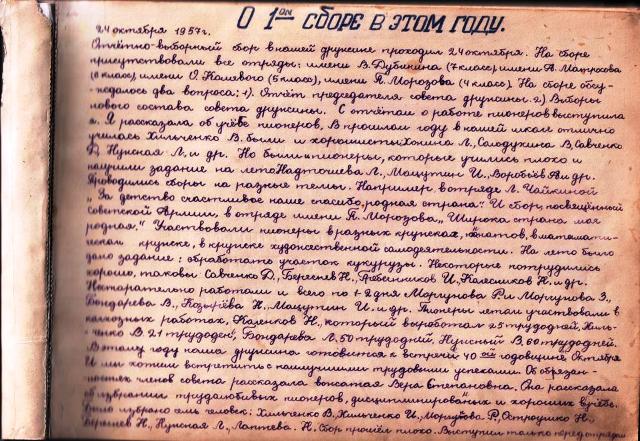 О 1ом СБОРЕ В ЭТОМ ГОДУ.
24 октября 1957г.
Отчётно-выборный сбор в нашей дружине проходил 24 октября. На сборе
присутствовали все отряды: имени В. Дубинина (7 класс), имени А. Матросова
(6 класс), имени О. Кошевого (5 класс), имени П. Морозова (4 класс). На сборе обсу-
ждалось два вопроса: 1). Отчёт председателя совета дружины. 2). Выборы
нового состава совета дружины. С отчётом о работе пионеров выступила
я. Я рассказала об учёбе пионеров. В прошлом году в нашей школе отлично
училась Хильченко В. были и хорошисты Л., Солодухина В., Савченко
Д. Нужная Л. и др. Но были и пионеры, которые учились плохо и
получили задание на лето Надточиева Л., Мацутин И., Воробьёв А. и др.
Проводились сборы на разные темы. Например в отряде Л. Чайкиной
„За детство счастливое наше спасибо, родная страна." И сбор, посвящённый
Советской Армии, в отряде имени П. Морозова „Широка страна моя
родная." Участвовали пионеры в разных кружках, в математи-
ческом кружке, в кружке художественной самодеятельности. На лето было
дано задание: обработать участок кукурузы. Некоторые потрудились
хорошо, таковы Савченко Д., Береснев Н., Гребенников И., Колесников Н. и др.
Нестарательно работали и всего по 1-2 дня Моргунова Р. и Моргунова З.,
Бондарева В., Козырева Н., Мацутин И. и др. Пионеры летом участвовали в
колхозных работах, Казенков Н., который выработал 25 трудодней, Хиль-
ченко В. 21 трудодень, Бондарева Л. 50 трудодней, Нужный В. 60 трудодней.
В этом году наша дружина готовится к встрече 40ой годовщине Октября
И мы хотим встретить с наилучшими трудовыми успехами. Об обязан-
ностях членов совета рассказала вожатая Вера Степановна. Она рассказала
об избрании трудолюбивых пионеров, дисциплинированых и хороших в учёбе.
Было избрано семь человек: Хильченко В., Хильченко И., Моргунова Р., Остроушко Н.,
Береснев Н., Нужная Л., Лаптева. Н. Сбор прошёл плохо. Выступил только